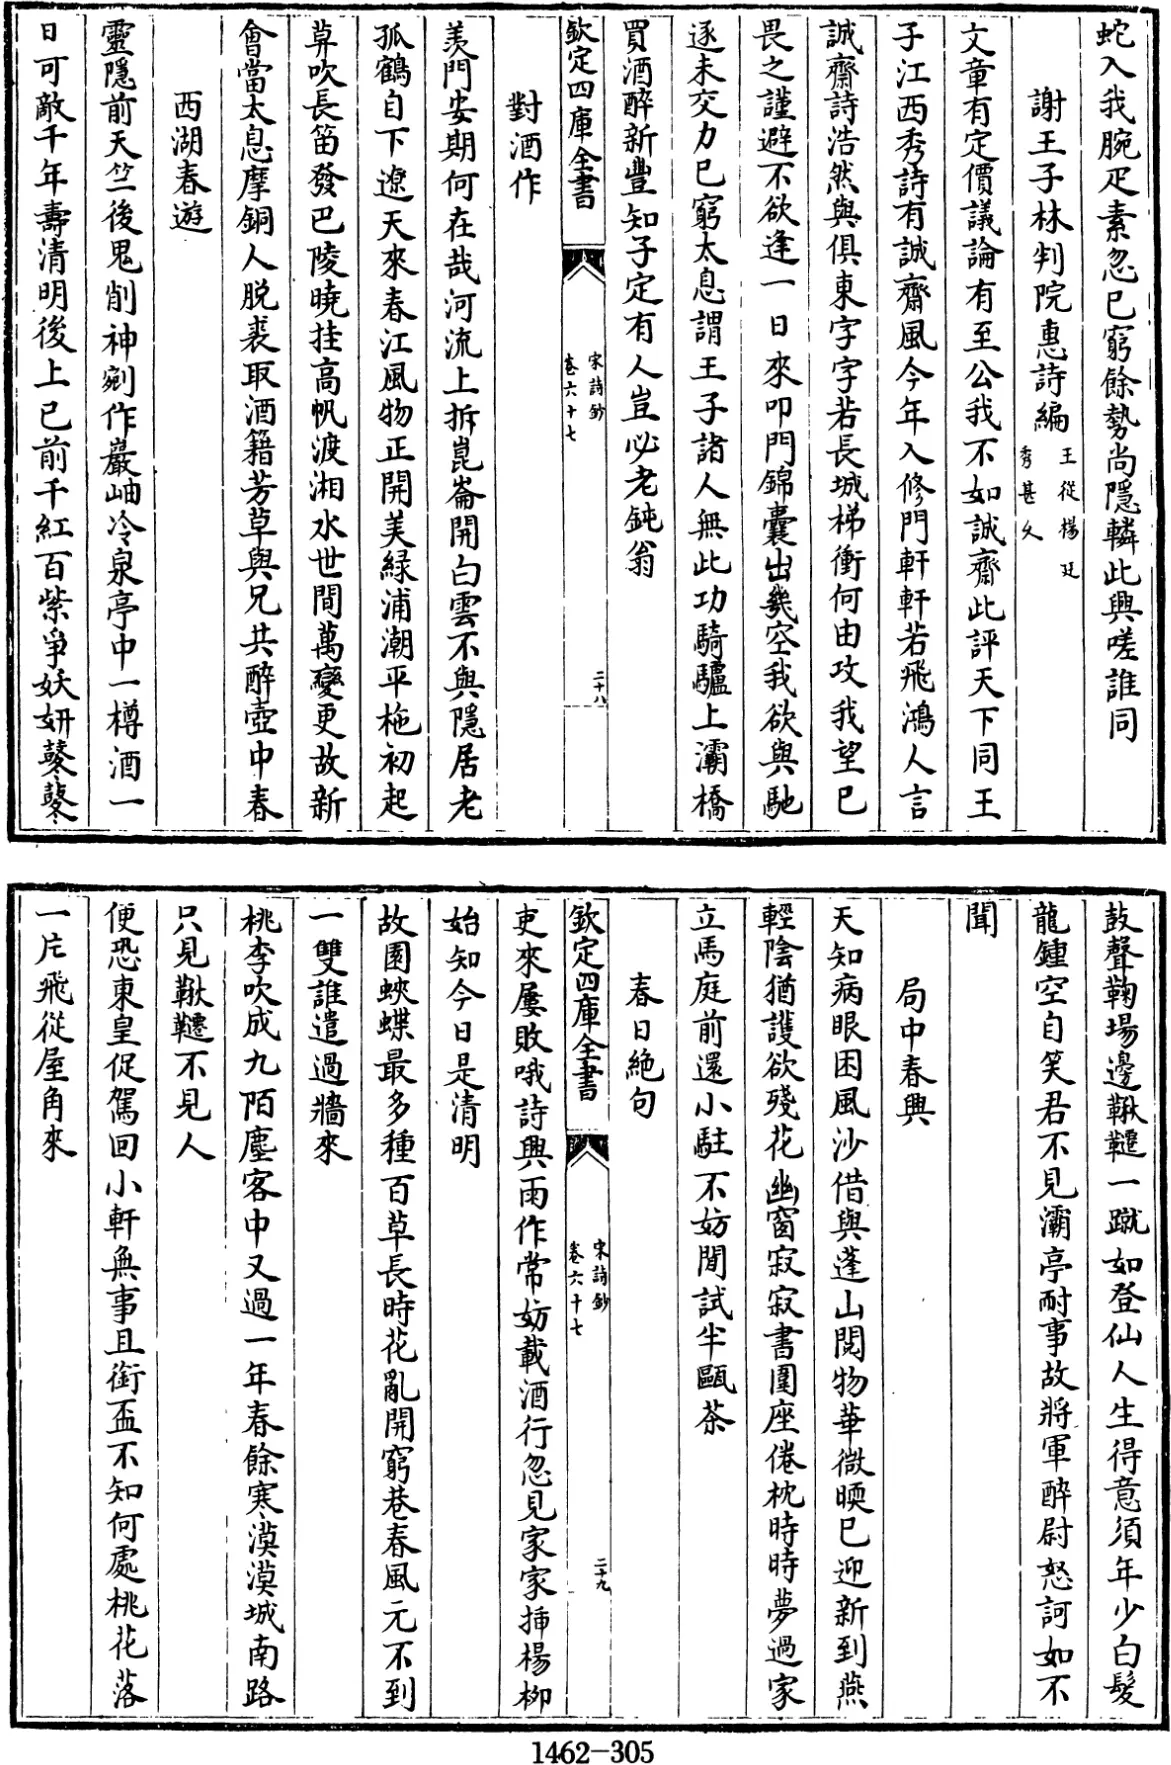 蛇入我腕疋素忽已窮餘勢尚隱轔此興嗟誰同
謝王子林判院惠詩編
王從楊廷
秀甚久
文章有定價議論有至公我不如誠齋此評天下同王
子江西秀詩有誠齋風今年入修門軒軒若飛鴻人言
誠齋詩浩然與俱東字字若長城梯衝何由攻我望已
畏之謹避不欲逢一日來叩門錦囊出幾空我欲與馳
逐未交力已窮太息謂王子諸人無此功騎驢上灞橋
買酒醉新豐知子定有人豈必老鈍翁
欽定四庫全書
宋詩鈔
卷六十七
二十八
對酒作
羨門安期何在哉河流上拆崑崙開白雲不與隱居老
孤鶴自下遼天來春江風物正開美綠浦潮平柂初起
莫吹長笛發巴陵曉挂高帆渡湘水世間萬變更故新
會當太息摩銅人脫裘取酒籍芳草與兄共醉壺中春
西湖春遊
靈隱前天竺後鬼削神剜作巖岫冷泉亭中一樽酒一
日可敵千年壽清明後上巳前千紅百紫爭妖妍鼕鼕
鼓聲鞠場邊鞦韆一蹴如登仙人生得意須年少白髮
龍鍾空自笑君不見灞亭耐事故將軍醉尉怒訶如不
聞
局中春興
天知病眼困風沙借與蓬山閱物華微暝已迎新到燕
輕陰猶護欲殘花幽窗寂寂書圍座倦枕時時夢過家
立馬庭前還小駐不妨閒試半甌茶
春日絶句
欽定四庫全書
宋詩鈔
卷六十七
二十九
吏來屢敗哦詩興雨作常妨載酒行忽見家家揷楊柳
始知今日是清明
故園蛺蝶最多種百草長時花亂開窮巷春風元不到
一雙誰遣過牆來
桃李吹成九陌塵客中又過一年春餘寒漠漠城南路
只見鞦韆不見人
便恐東皇促駕回小軒無事且銜盃不知何處桃花落
一片飛從屋角來
1462-305